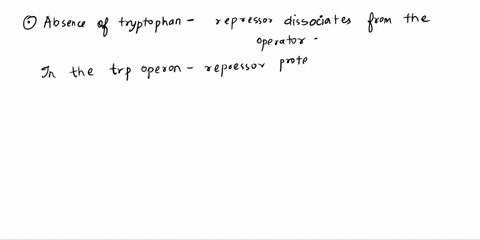 ⊙ Absence of tryptophan - repressor dissociates from the
operator.
In the trp operon - repressor prote